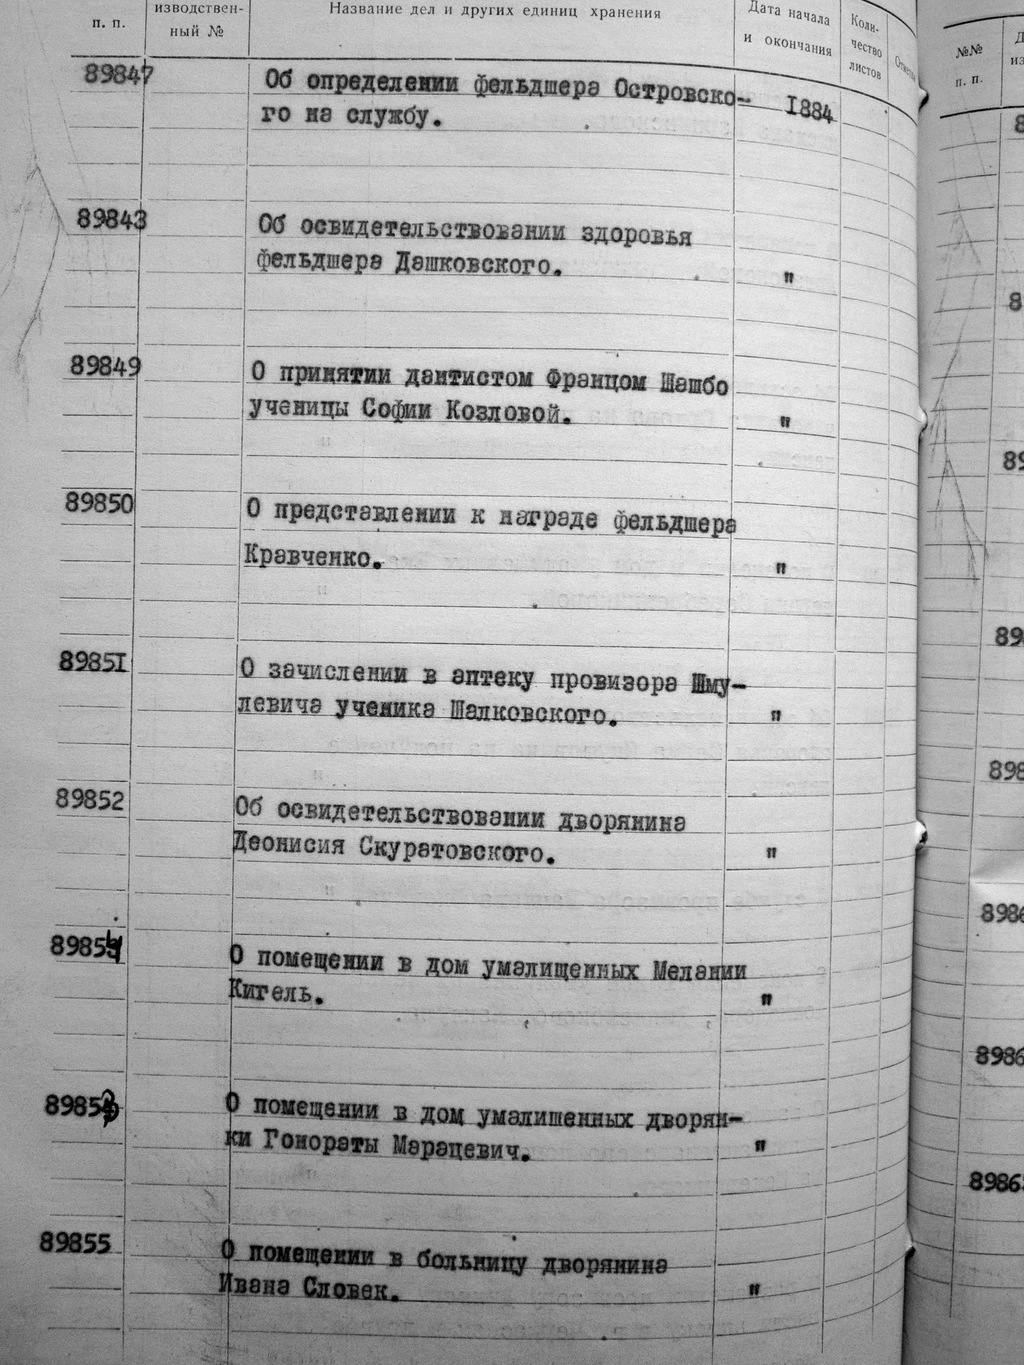 п. п.
изводствен-
ный №
Название дел и других единиц хранения
Дата начала
и окончания
Коли-
чество
листов
89847 Об определении фельдшера Островско- 1884
го на службу.
89848 Об освидетельствовании здоровья
фельдшера Дашковского. "
89849 О принятии дантистом Францом Шашбо
ученицы Софии Козловой. "
89850 О представлении к награде фельдшера
Кравченко. "
89851 О зачислении в аптеку провизора Шму-
левича ученика Шалковского. "
89852 Об освидетельствовании дворянина
Деонисия Скуратовского. "
89854 О помещении в дом умалищенных Мелании
Кигель. "
89853 О помещении в дом умалишенных дворян-
ки Гонораты Марацевич. "
89855 О помещении в больницу дворянина
Ивана Словек. "
№№
п. п.